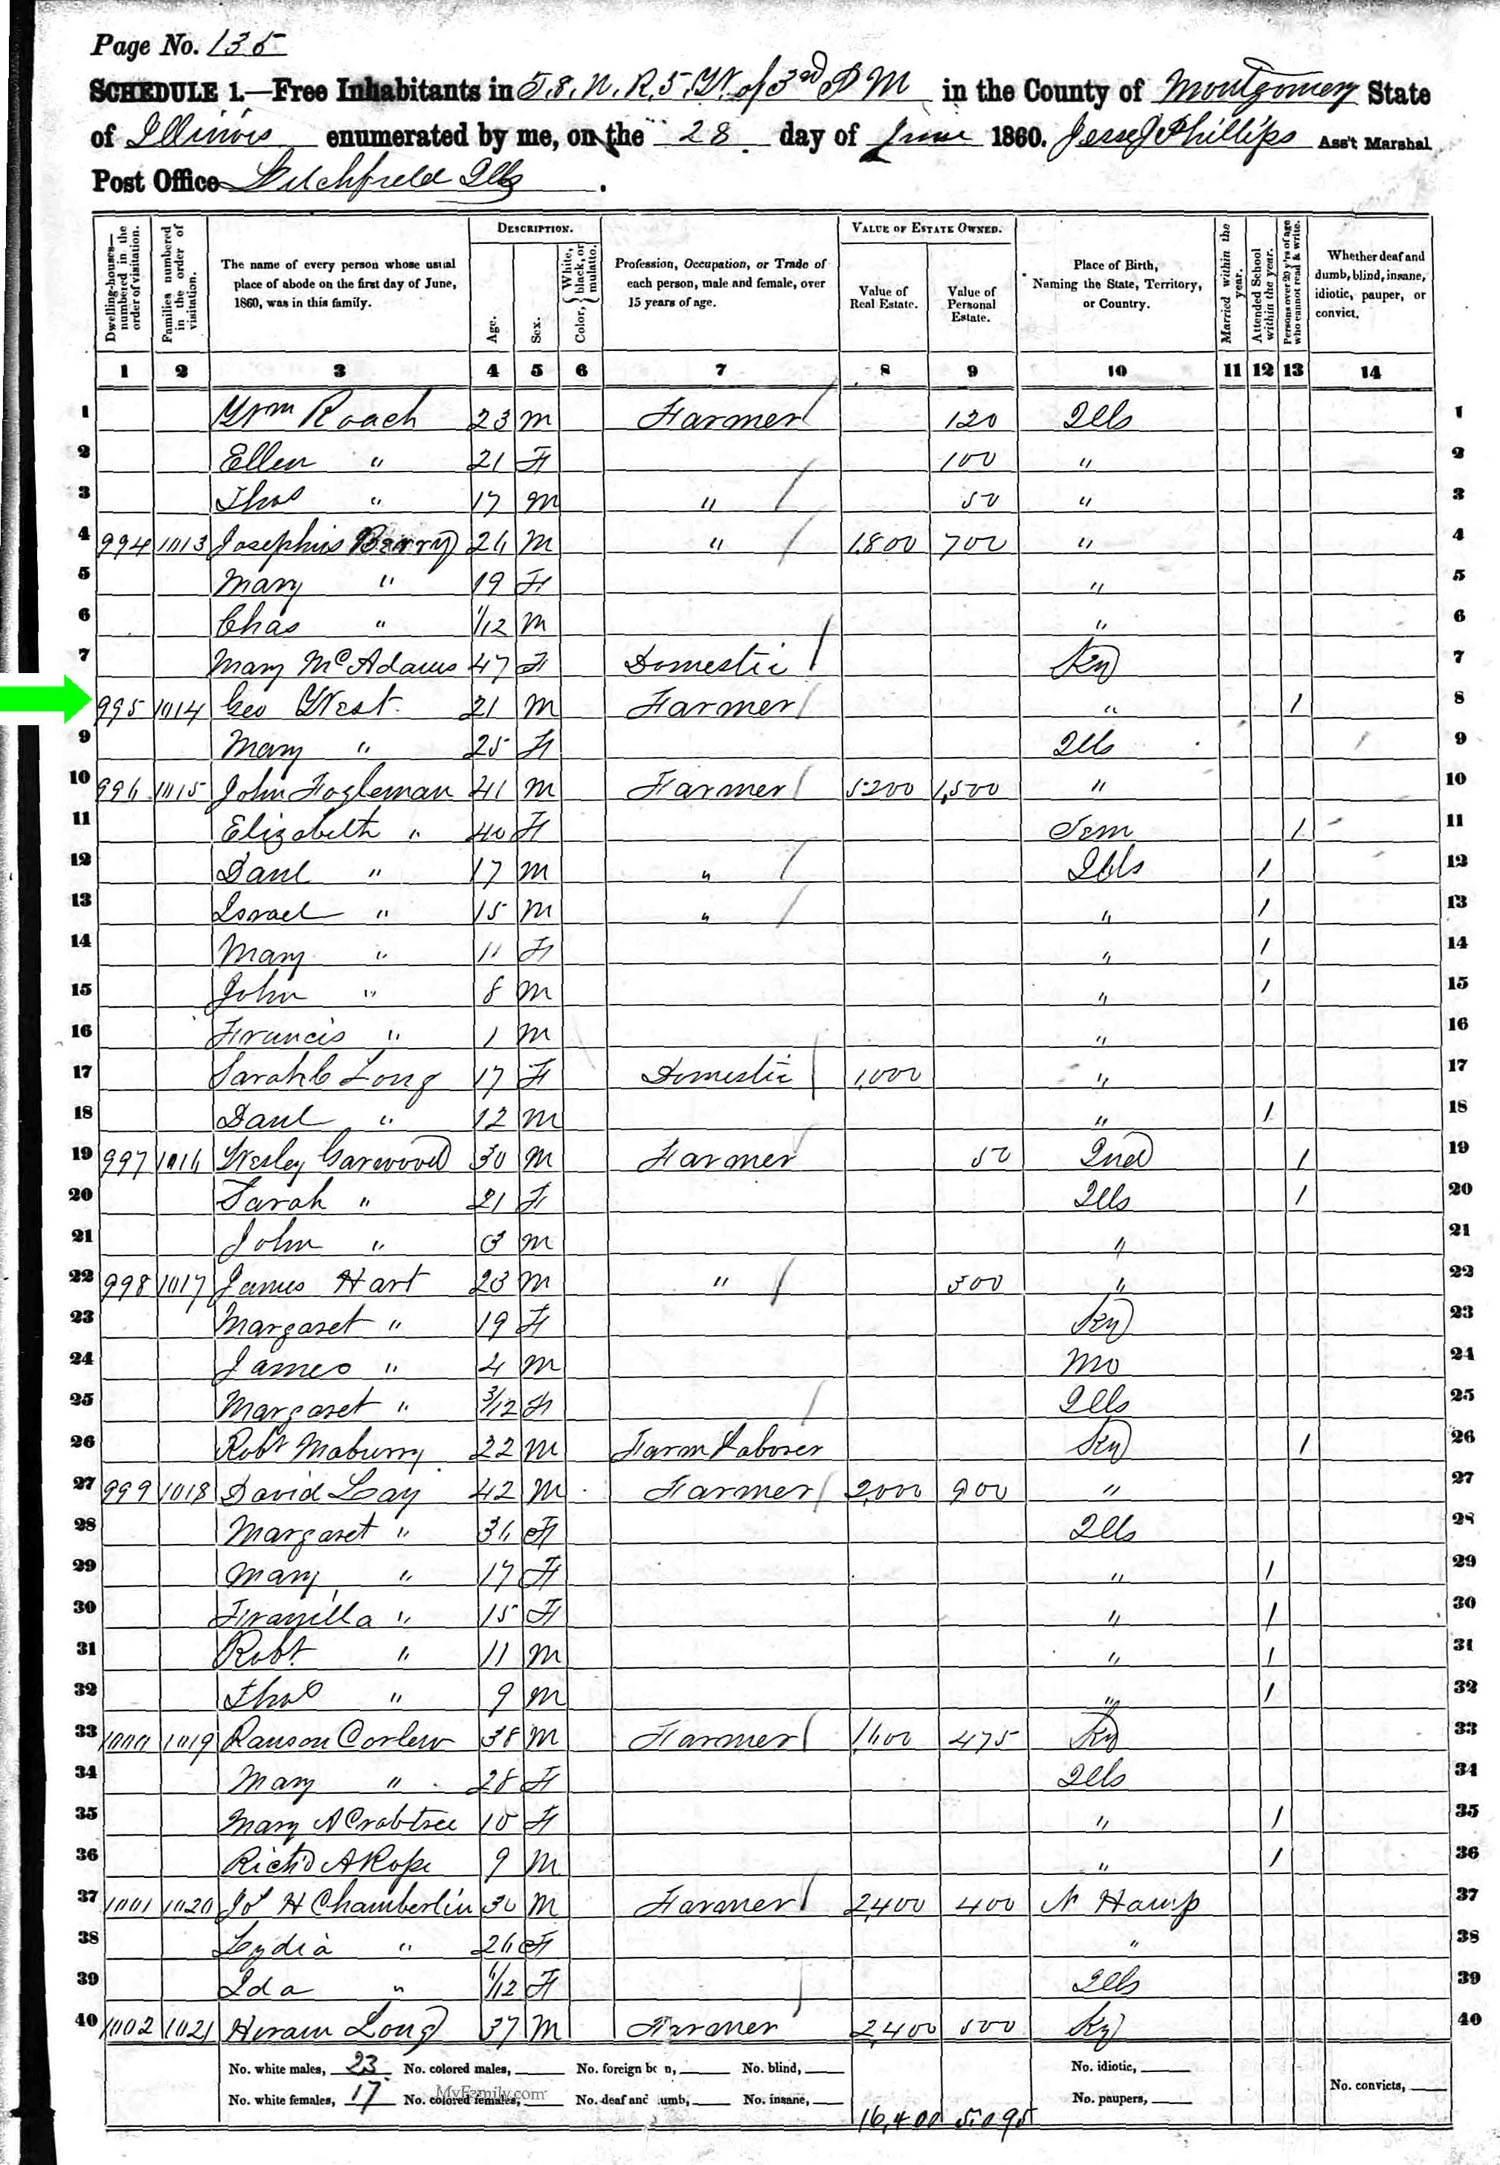 Page No. 135
SCHEDULE 1.—Free Inhabitants in T. 8. N. R. 5. W. of 3rd P M in the County of Montgomery State
of Illinois enumerated by me, on the 28 day of June 1860. Jesse J Phillips Ass't Marshal
Post Office Litchfield Ills.
Dwelling-houses—numbered in the order of visitation. Families numbered in the order of visitation. The name of every person whose usual place of abode on the first day of June, 1860, was in this family. DESCRIPTION. Age. Sex. Color, { White, black, or mulatto. Profession, Occupation, or Trade of each person, male and female, over 15 years of age. VALUE OF ESTATE OWNED. Value of Real Estate. Value of Personal Estate. Place of Birth, Naming the State, Territory, or Country. Married within the year. Attended School within the year. Persons over 20 y'rs of age who cannot read & write. Whether deaf and dumb, blind, insane, idiotic, pauper, or convict.
1 2 3 4 5 6 7 8 9 10 11 12 13 14
1 Wm Roach 23 M Farmer 120 Ills 1
2 Ellen " 21 F 100 " 2
3 Thos " 17 M " 50 " 3
4 994 1013 Josephus Barry 26 M " 1,800 700 " 4
5 Mary " 19 F " 5
6 Chas " 1/12 M " 6
7 Mary McAdams 47 F Domestic Ky 7
8 995 1014 Geo West 21 M Farmer " 1 8
9 Mary " 25 F Ills 9
10 996 1015 John Fogleman 41 M Farmer 5200 1,500 " 10
11 Elizabeth " 40 F Tenn 1 11
12 Danl " 17 M " Ills 1 12
13 Israel " 15 M " " 1 13
14 Mary " 11 F " 1 14
15 John " 8 M " 1 15
16 Francis " 1 M " 16
17 Sarah C Long 17 F Domestic 1,000 " 17
18 Danl " 12 M " 1 18
19 997 1016 Wesley Garwood 30 M Farmer 50 Ind 1 19
20 Sarah " 21 F Ills 1 20
21 John " 3 M " 21
22 998 1017 James Hart 23 M " 300 " 22
23 Margaret " 19 F Ky 23
24 James " 4 M Mo 24
25 Margaret " 3/12 F Ills 25
26 Robt Maburry 22 M Farm Laborer Ky 1 26
27 999 1018 David Lay 42 M Farmer 2,000 900 " 27
28 Margaret " 36 F Ills 28
29 Mary " 17 F " 1 29
30 " 15 F " 1 30
31 Robt " 11 M " 1 31
32 Thos " 9 M " 1 32
33 1000 1019 Ranson Corlew 38 M Farmer 1,600 475 Ky 33
34 Mary " 28 F Ills 34
35 Mary A Crabtree 10 F " 1 35
36 Richd A Rope 9 M " 1 36
37 1001 1020 Jos H Chamberlin 30 M Farmer 2,400 400 N Hamp 37
38 Lydia " 26 F " 38
39 Ida " /12 F Ills 39
40 1002 1021 Hiram Long 37 M Farmer 2,400 500 Ky 40
No. white males, 23 No. colored males, No. foreign born, No. blind, No. idiotic,
No. white females, 17 No. colored females, No. deaf and dumb, No. insane, No. paupers, No. convicts,
MyFamily.com
16,400 5095